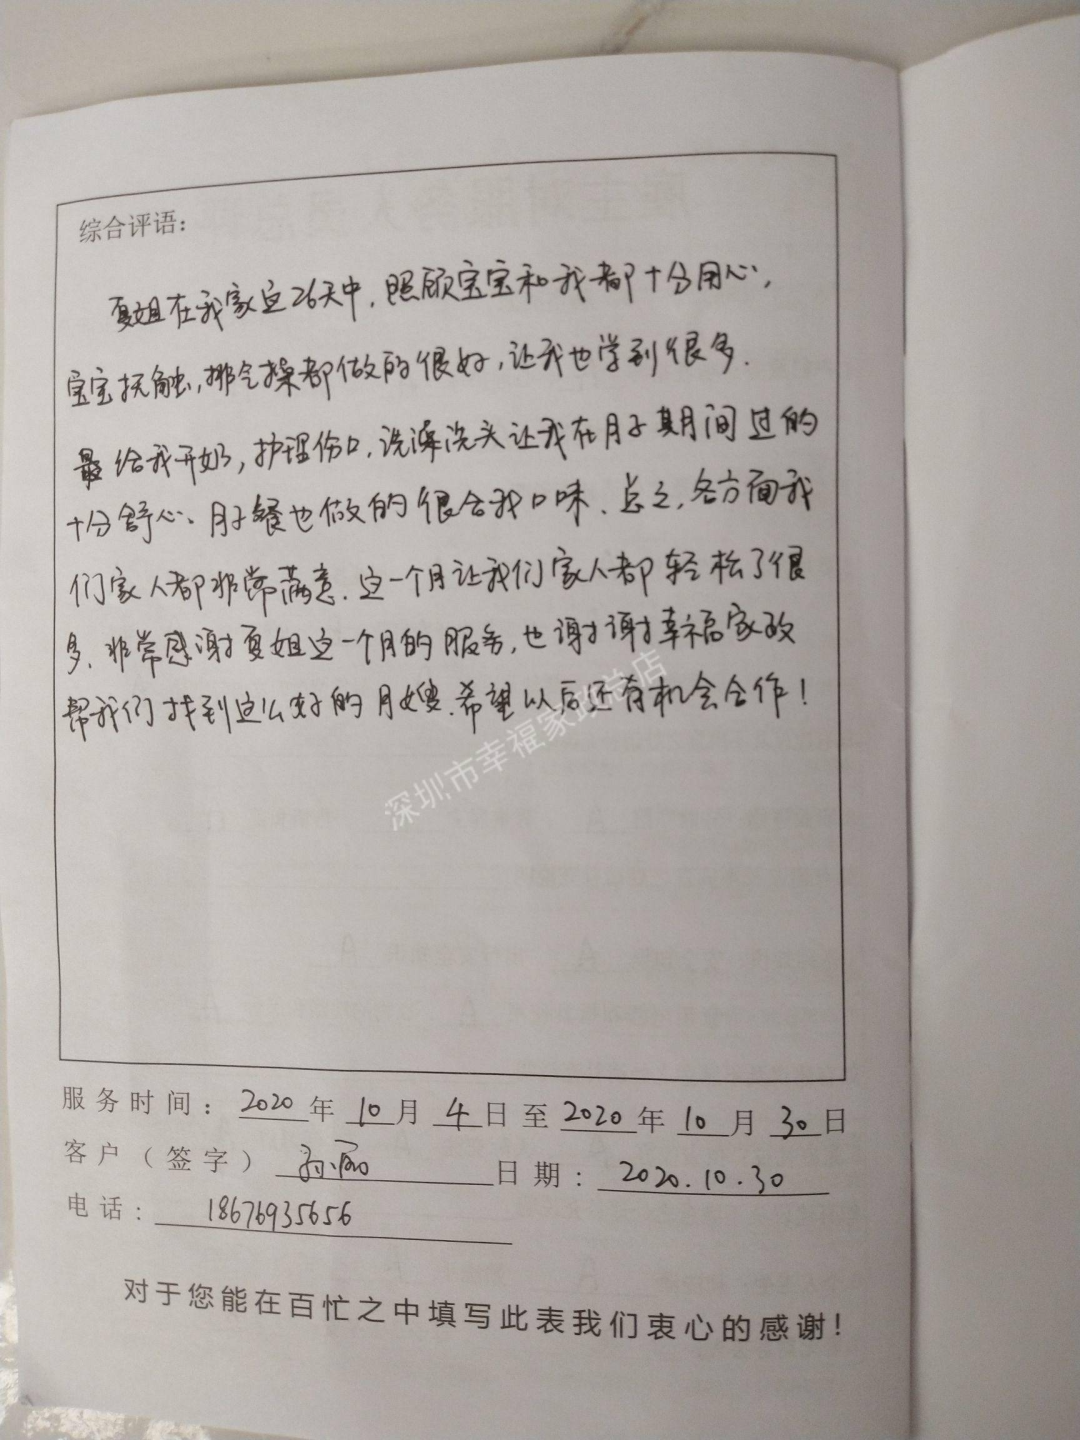 综合评语：
夏姐在我家这26天中，照顾宝宝和我都十分用心，
宝宝抚触，排气操都做的很好，让我也学到很多．
最给我开奶，护理伤口，洗澡洗头让我在月子期间过的
十分舒心、月子餐也做的很合我口味、总之，各方面我
们家人都非常满意．这一个月让我们家人都轻松了很
多．非常感谢夏姐这一个月的服务，也谢谢幸福家政
帮我们找到这么好的月嫂．希望以后还有机会合作！
深圳市幸福家政总店
服务时间：2020年10月4日至2020年10月30日
客户（签字）日期：2020.10.30
电话：18676935656
对于您能在百忙之中填写此表我们衷心的感谢！